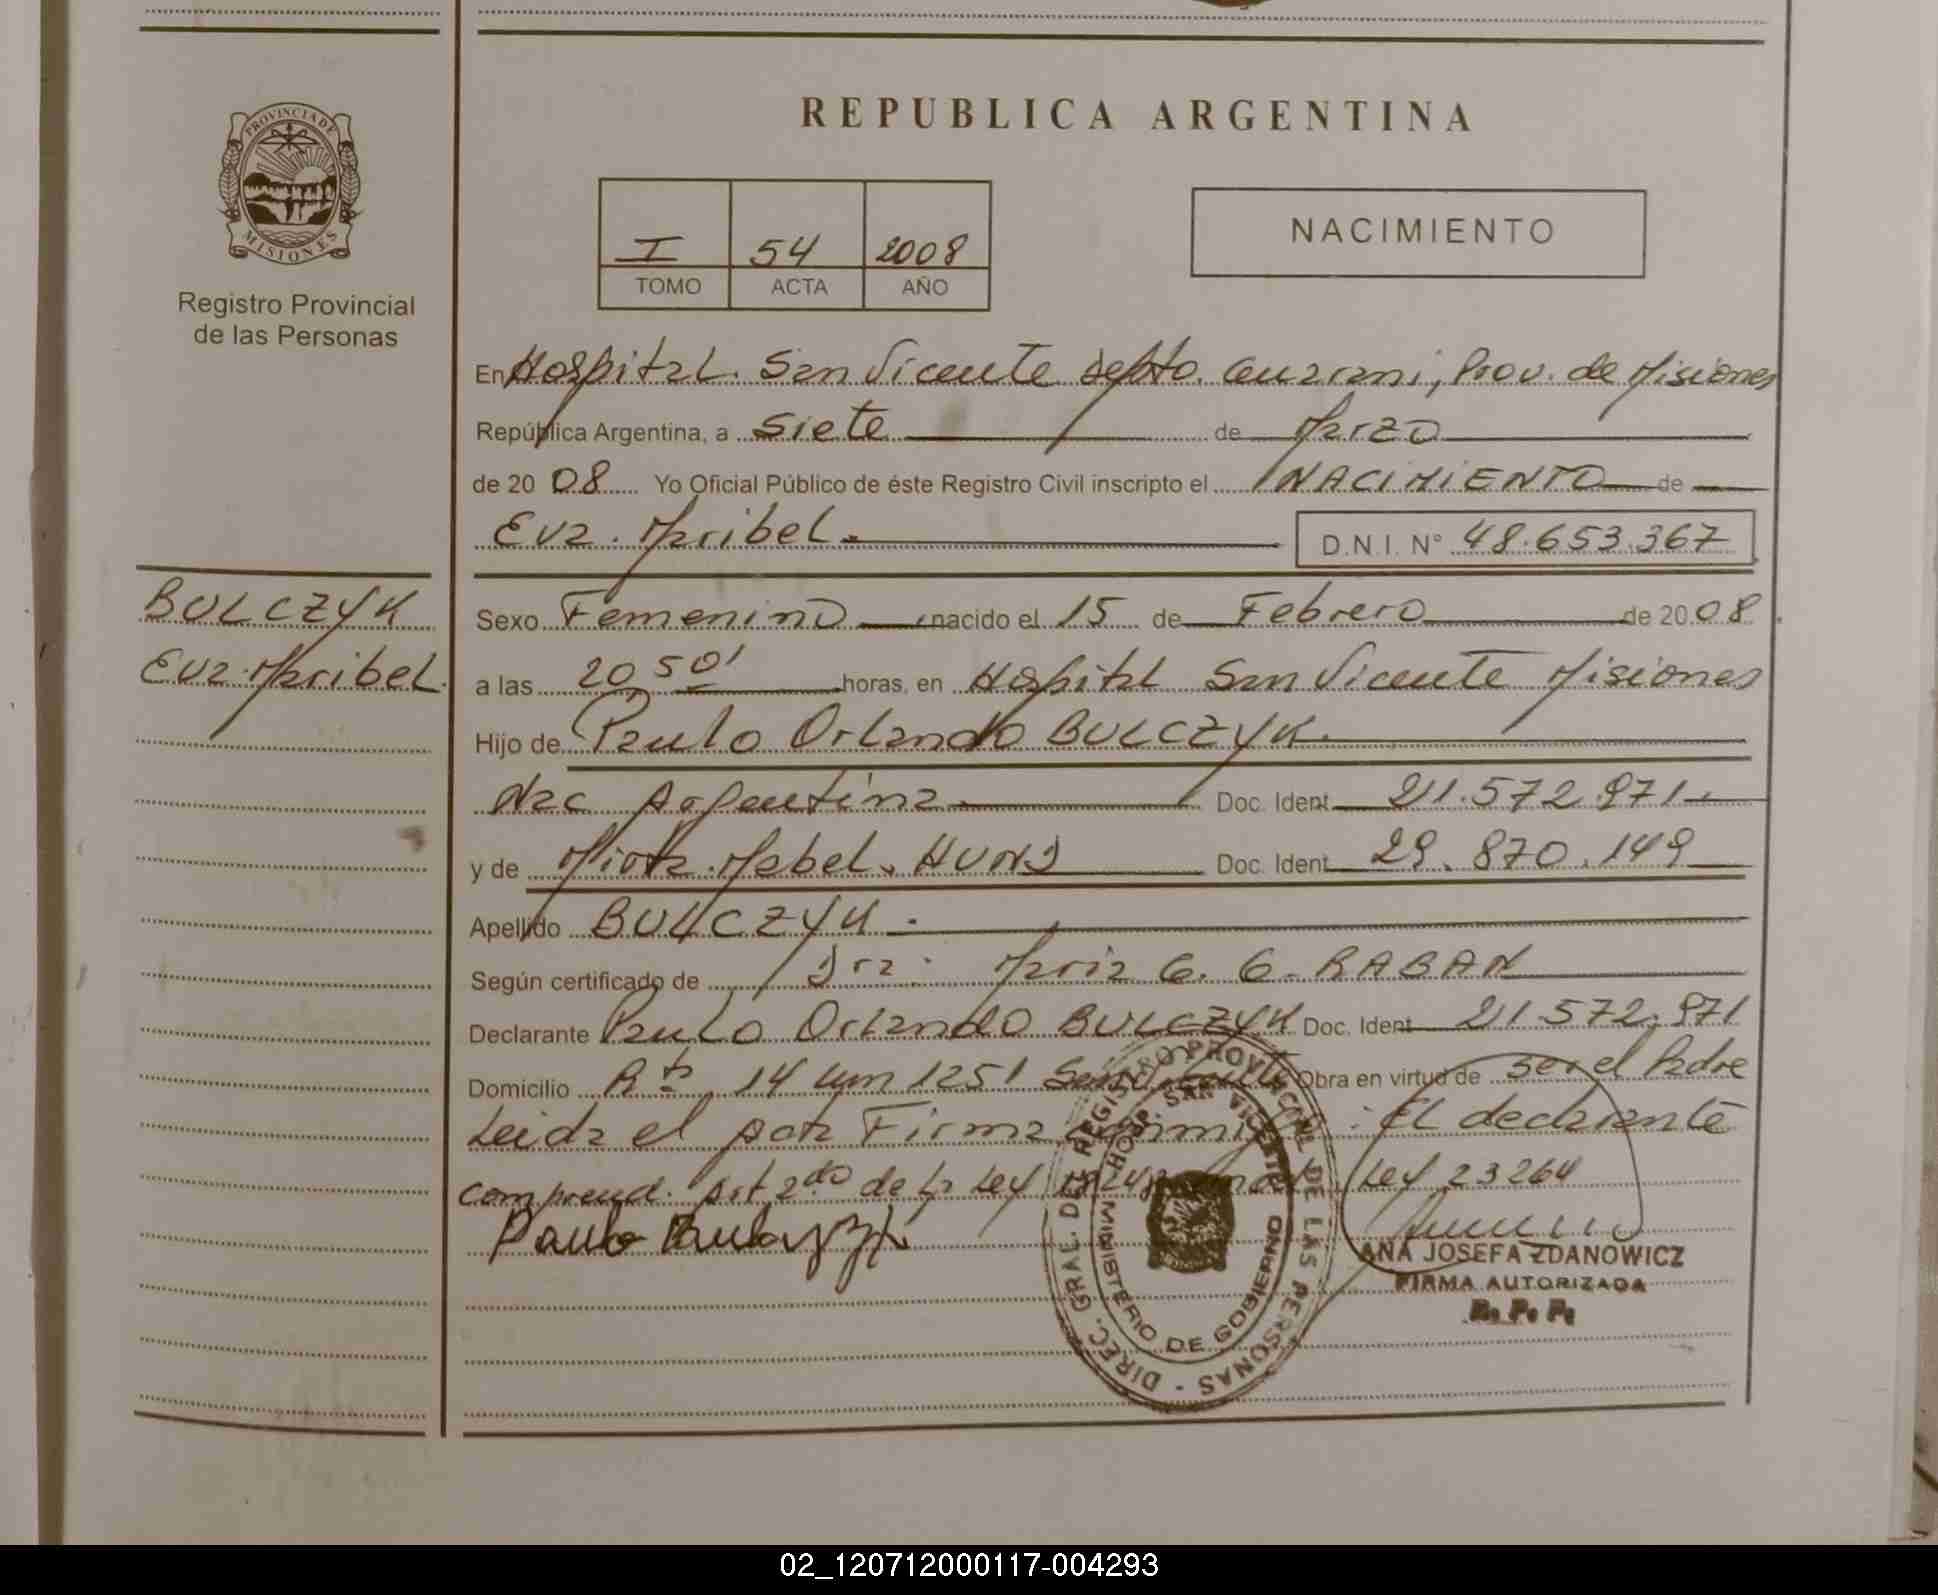 REPUBLICA ARGENTINA
PROVINCIA DE
MISIONES
Registro Provincial
de las Personas
I 54 2008
TOMO ACTA AÑO
NACIMIENTO
En Hospital San Vicente depto. Guarani, Prov. de Misiones
República Argentina, a siete de Marzo
de 20 08 Yo Oficial Público de éste Registro Civil inscripto el NACIMIENTO de
Eva Maribel. D.N.I. N° 48.653.367
BULCZYK
Eva Maribel
Sexo Femenino nacido el 15 de Febrero de 20 08
a las 20,50' horas, en Hospital San Vicente Misiones
Hijo de Paulo Orlando BULCZYK.
Nac Argentina Doc. Ident 21.572.971
y de Mabel. Doc. Ident 29.870.149
Apellido BULCZYK.
Según certificado de Dra. Maria G. G. RABAN
Declarante Paulo Orlando BULCZYK Doc. Ident 21.572.971
Domicilio Rta 14 km 1251 San Vicente Obra en virtud de ser el Padre
Leida el acta Firma conmigo: El declarante
comprend. Art 2do de la Ley Ley 23264
DIREC. GRAL. DE REGISTRO PROVINCIAL DE LAS PERSONAS -
HOSP. SAN VICENTE
MINISTERIO DE GOBIERNO
ANA JOSEFA ZDANOWICZ
FIRMA AUTORIZADA
R. P. P.
02_120712000117-004293